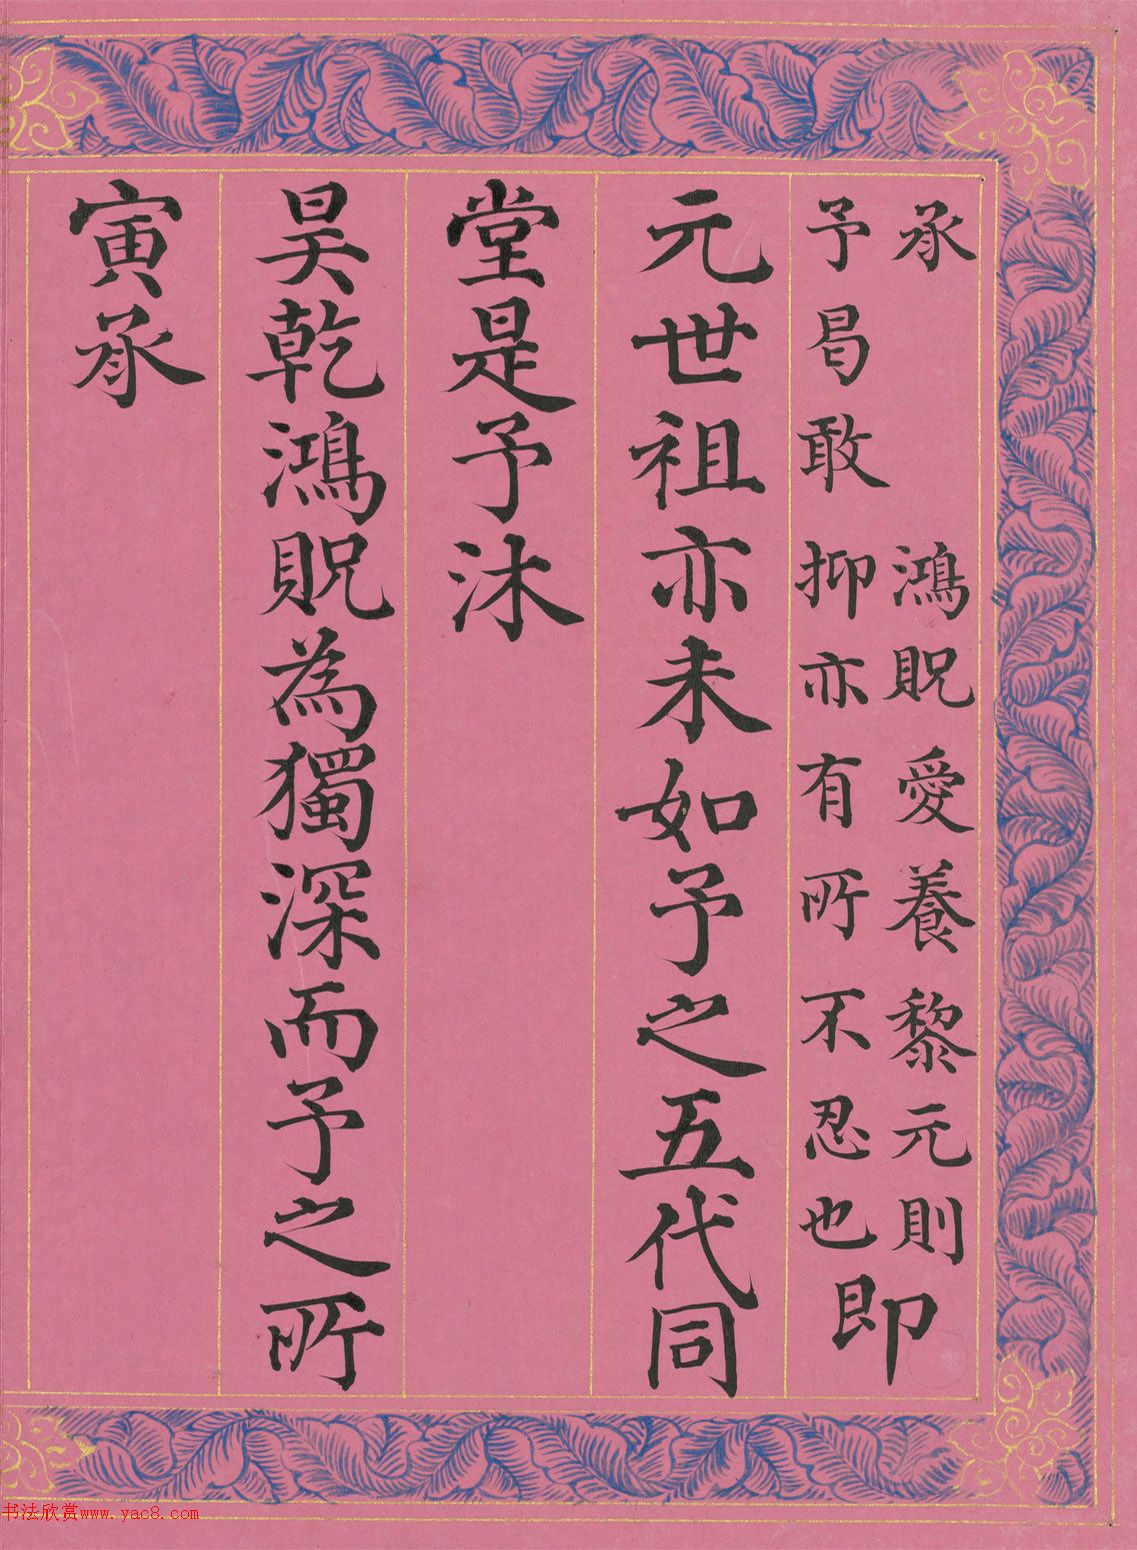 承 鴻貺愛養黎元則
予曷敢抑亦有所不忍也
即
元世祖亦未如予之五代同
堂是予沐
昊乾鴻貺為獨深而予之所
寅承
书法欣赏www.yac8.com